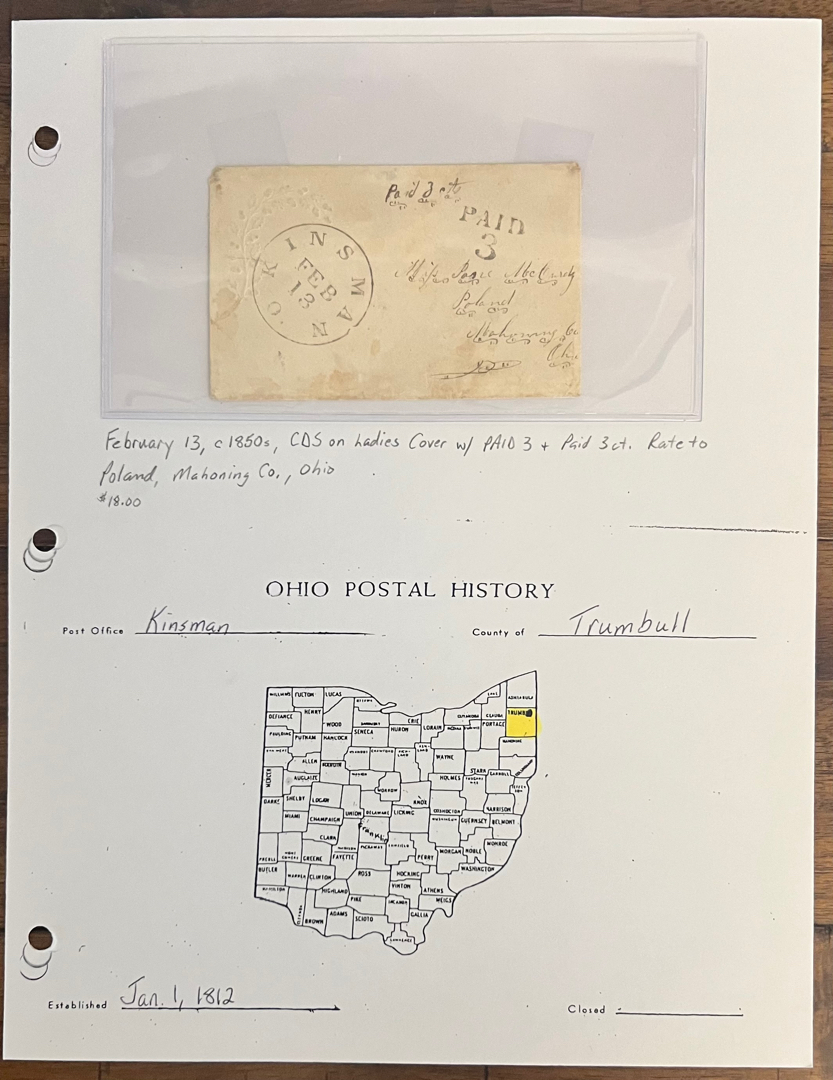 Paid 3 cts
PAID
3
KINSMAN O.
FEB
13
Miss Josie McCurdy
Poland
Mahoning Co
Oh.
February 13, c1850s, CDS on Ladies Cover w/ PAID 3 + Paid 3ct. Rate to
Poland, Mahoning Co., Ohio
$18.00
OHIO POSTAL HISTORY
Post Office Kinsman County of Trumbull
WILLIAMS FULTON LUCAS LAKE ASHTABULA
DEFIANCE HENRY WOOD ERIE LORAIN CUYAHOGA GEAUGA TRUMB
PAULDING PUTNAM HANCOCK SENECA HURON MEDINA PORTAGE MAHONING
ALLEN WAYNE STARK COLUMBIANA
MERCER AUGLAIZE HARDIN MARION MORROW HOLMES CARROLL
DARKE SHELBY LOGAN UNION DELAWARE KNOX COSHOCTON HARRISON
MIAMI CHAMPAIGN Franklin LICKING GUERNSEY BELMONT
CLARK MADISON PICKAWAY FAIRFIELD PERRY MORGAN NOBLE MONROE
PREBLE GREENE FAYETTE HOCKING WASHINGTON
BUTLER WARREN CLINTON ROSS VINTON ATHENS
HAMILTON HIGHLAND PIKE MEIGS
BROWN ADAMS SCIOTO GALLIA
LAWRENCE
Established Jan. 1, 1812 Closed